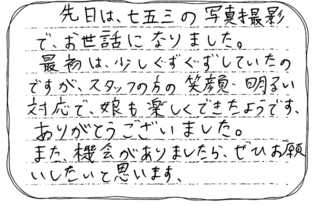 先日は、七五三の写真撮影
で、お世話になりました。
最初は、少しぐずぐずしていたの
ですが、スタッフの方の笑顔・明るい
対応で、娘も楽しくできたようです、
ありがとうございました。
また、機会がありましたら、ぜひお願
いしたいと思います、